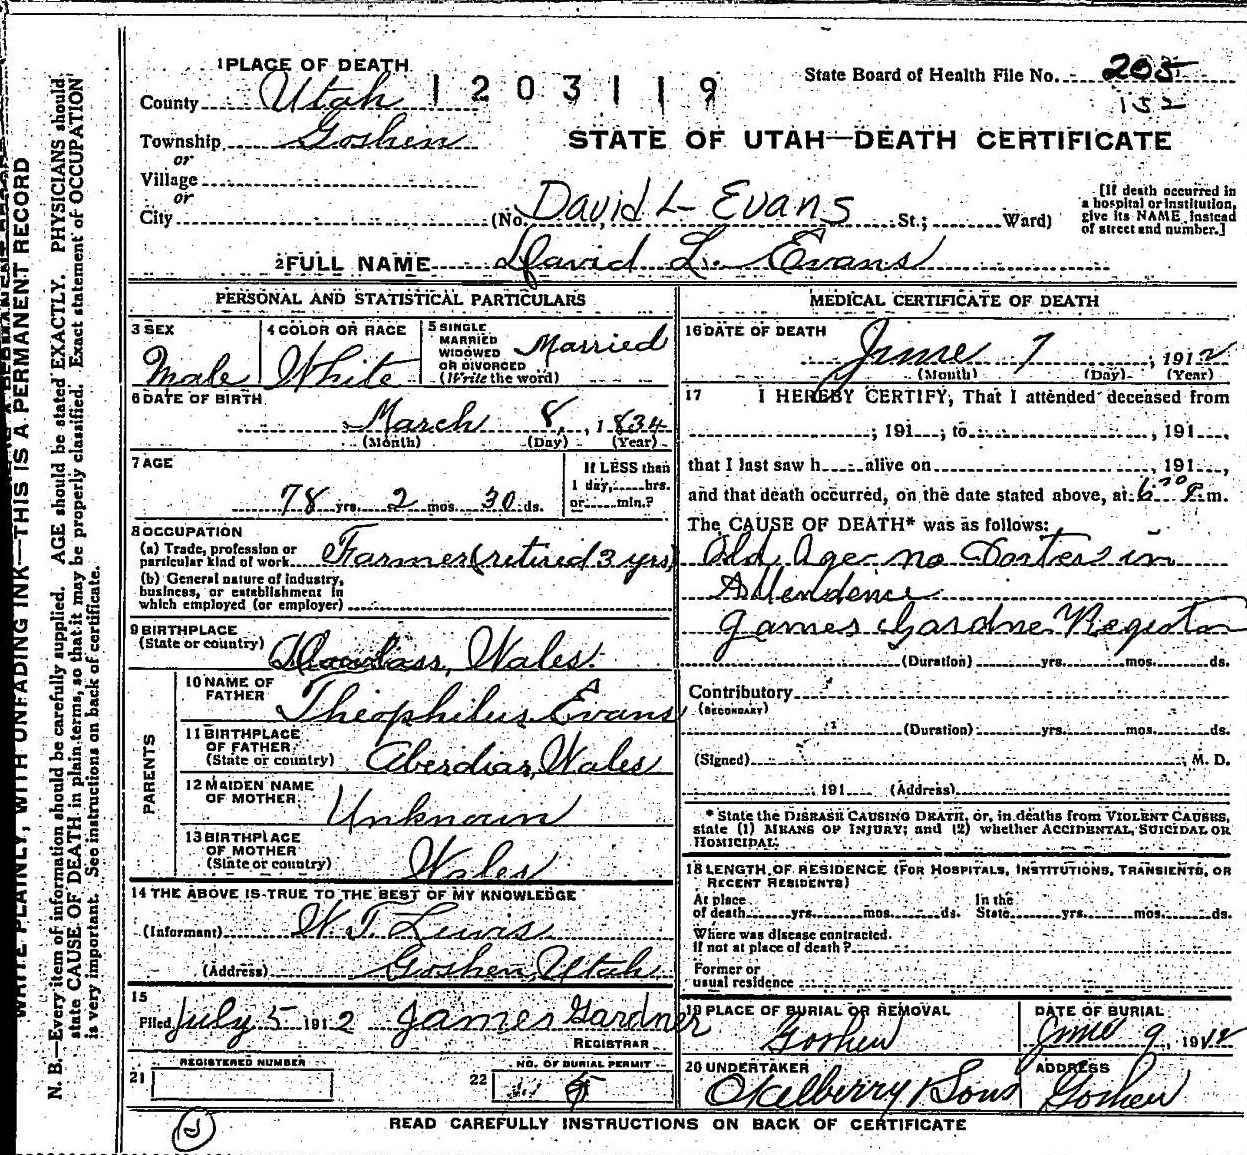 1 PLACE OF DEATH
County Utah
1203119
State Board of Health File No. 205
152
Township Goshen
or
Village
or
City
STATE OF UTAH—DEATH CERTIFICATE
(No. David L Evans St.; Ward)
[If death occurred in
a hospital or institution,
give its NAME instead
of street and number.]
2 FULL NAME David L. Evans
PERSONAL AND STATISTICAL PARTICULARS
3 SEX
Male
4 COLOR OR RACE
White
5 SINGLE
MARRIED
WIDOWED
OR DIVORCED
(Write the word)
Married
6 DATE OF BIRTH
March 8, 1834
(Month) (Day) (Year)
7 AGE
78 yrs. 2 mos. 30 ds.
If LESS than
1 day, hrs.
or min.?
8 OCCUPATION
(a) Trade, profession or
particular kind of work Farmer (retired 3 yrs)
(b) General nature of industry,
business, or establishment in
which employed (or employer)
9 BIRTHPLACE
(State or country) Wales.
PARENTS
10 NAME OF
FATHER
Theophilus Evans
11 BIRTHPLACE
OF FATHER
(State or country) Aberdias, Wales
12 MAIDEN NAME
OF MOTHER
Unknown
13 BIRTHPLACE
OF MOTHER
(State or country) Wales
14 THE ABOVE IS TRUE TO THE BEST OF MY KNOWLEDGE
(Informant) W. T. Lewis
(Address) Goshen, Utah
15
Filed July 5 1912 James Gardner
REGISTRAR
REGISTERED NUMBER
21
NO. OF BURIAL PERMIT
22
MEDICAL CERTIFICATE OF DEATH
16 DATE OF DEATH
June 7, 1912
(Month) (Day) (Year)
17 I HEREBY CERTIFY, That I attended deceased from
; 191 ; to , 191 ,
that I last saw h alive on , 191 ,
and that death occurred, on the date stated above, at 6 00 P. m.
The CAUSE OF DEATH* was as follows:
Old Age no Docters in
Attendence
James Gardner Registrar
(Duration) yrs. mos. ds.
Contributory
(SECONDARY)
(Duration) yrs. mos. ds.
(Signed) , M. D.
, 191 (Address)
* State the DISEASE CAUSING DEATH, or, in deaths from VIOLENT CAUSES,
state (1) MEANS OF INJURY; and (2) whether ACCIDENTAL, SUICIDAL OR
HOMICIDAL.
18 LENGTH OF RESIDENCE (FOR HOSPITALS, INSTITUTIONS, TRANSIENTS, OR
RECENT RESIDENTS)
At place
of death yrs. mos. ds.
In the
State yrs. mos. ds.
Where was disease contracted.
If not at place of death?
Former or
usual residence
19 PLACE OF BURIAL OR REMOVAL
Goshen
DATE OF BURIAL
June 9, 1912
20 UNDERTAKER
Okelberry & Sons
ADDRESS
Goshen
READ CAREFULLY INSTRUCTIONS ON BACK OF CERTIFICATE
WRITE PLAINLY, WITH UNFADING INK—THIS IS A PERMANENT RECORD
N. B.—Every item of information should be carefully supplied. AGE should be stated EXACTLY. PHYSICIANS should
state CAUSE OF DEATH in plain terms, so that it may be properly classified. Exact statement of OCCUPATION
is very important. See instructions on back of certificate.